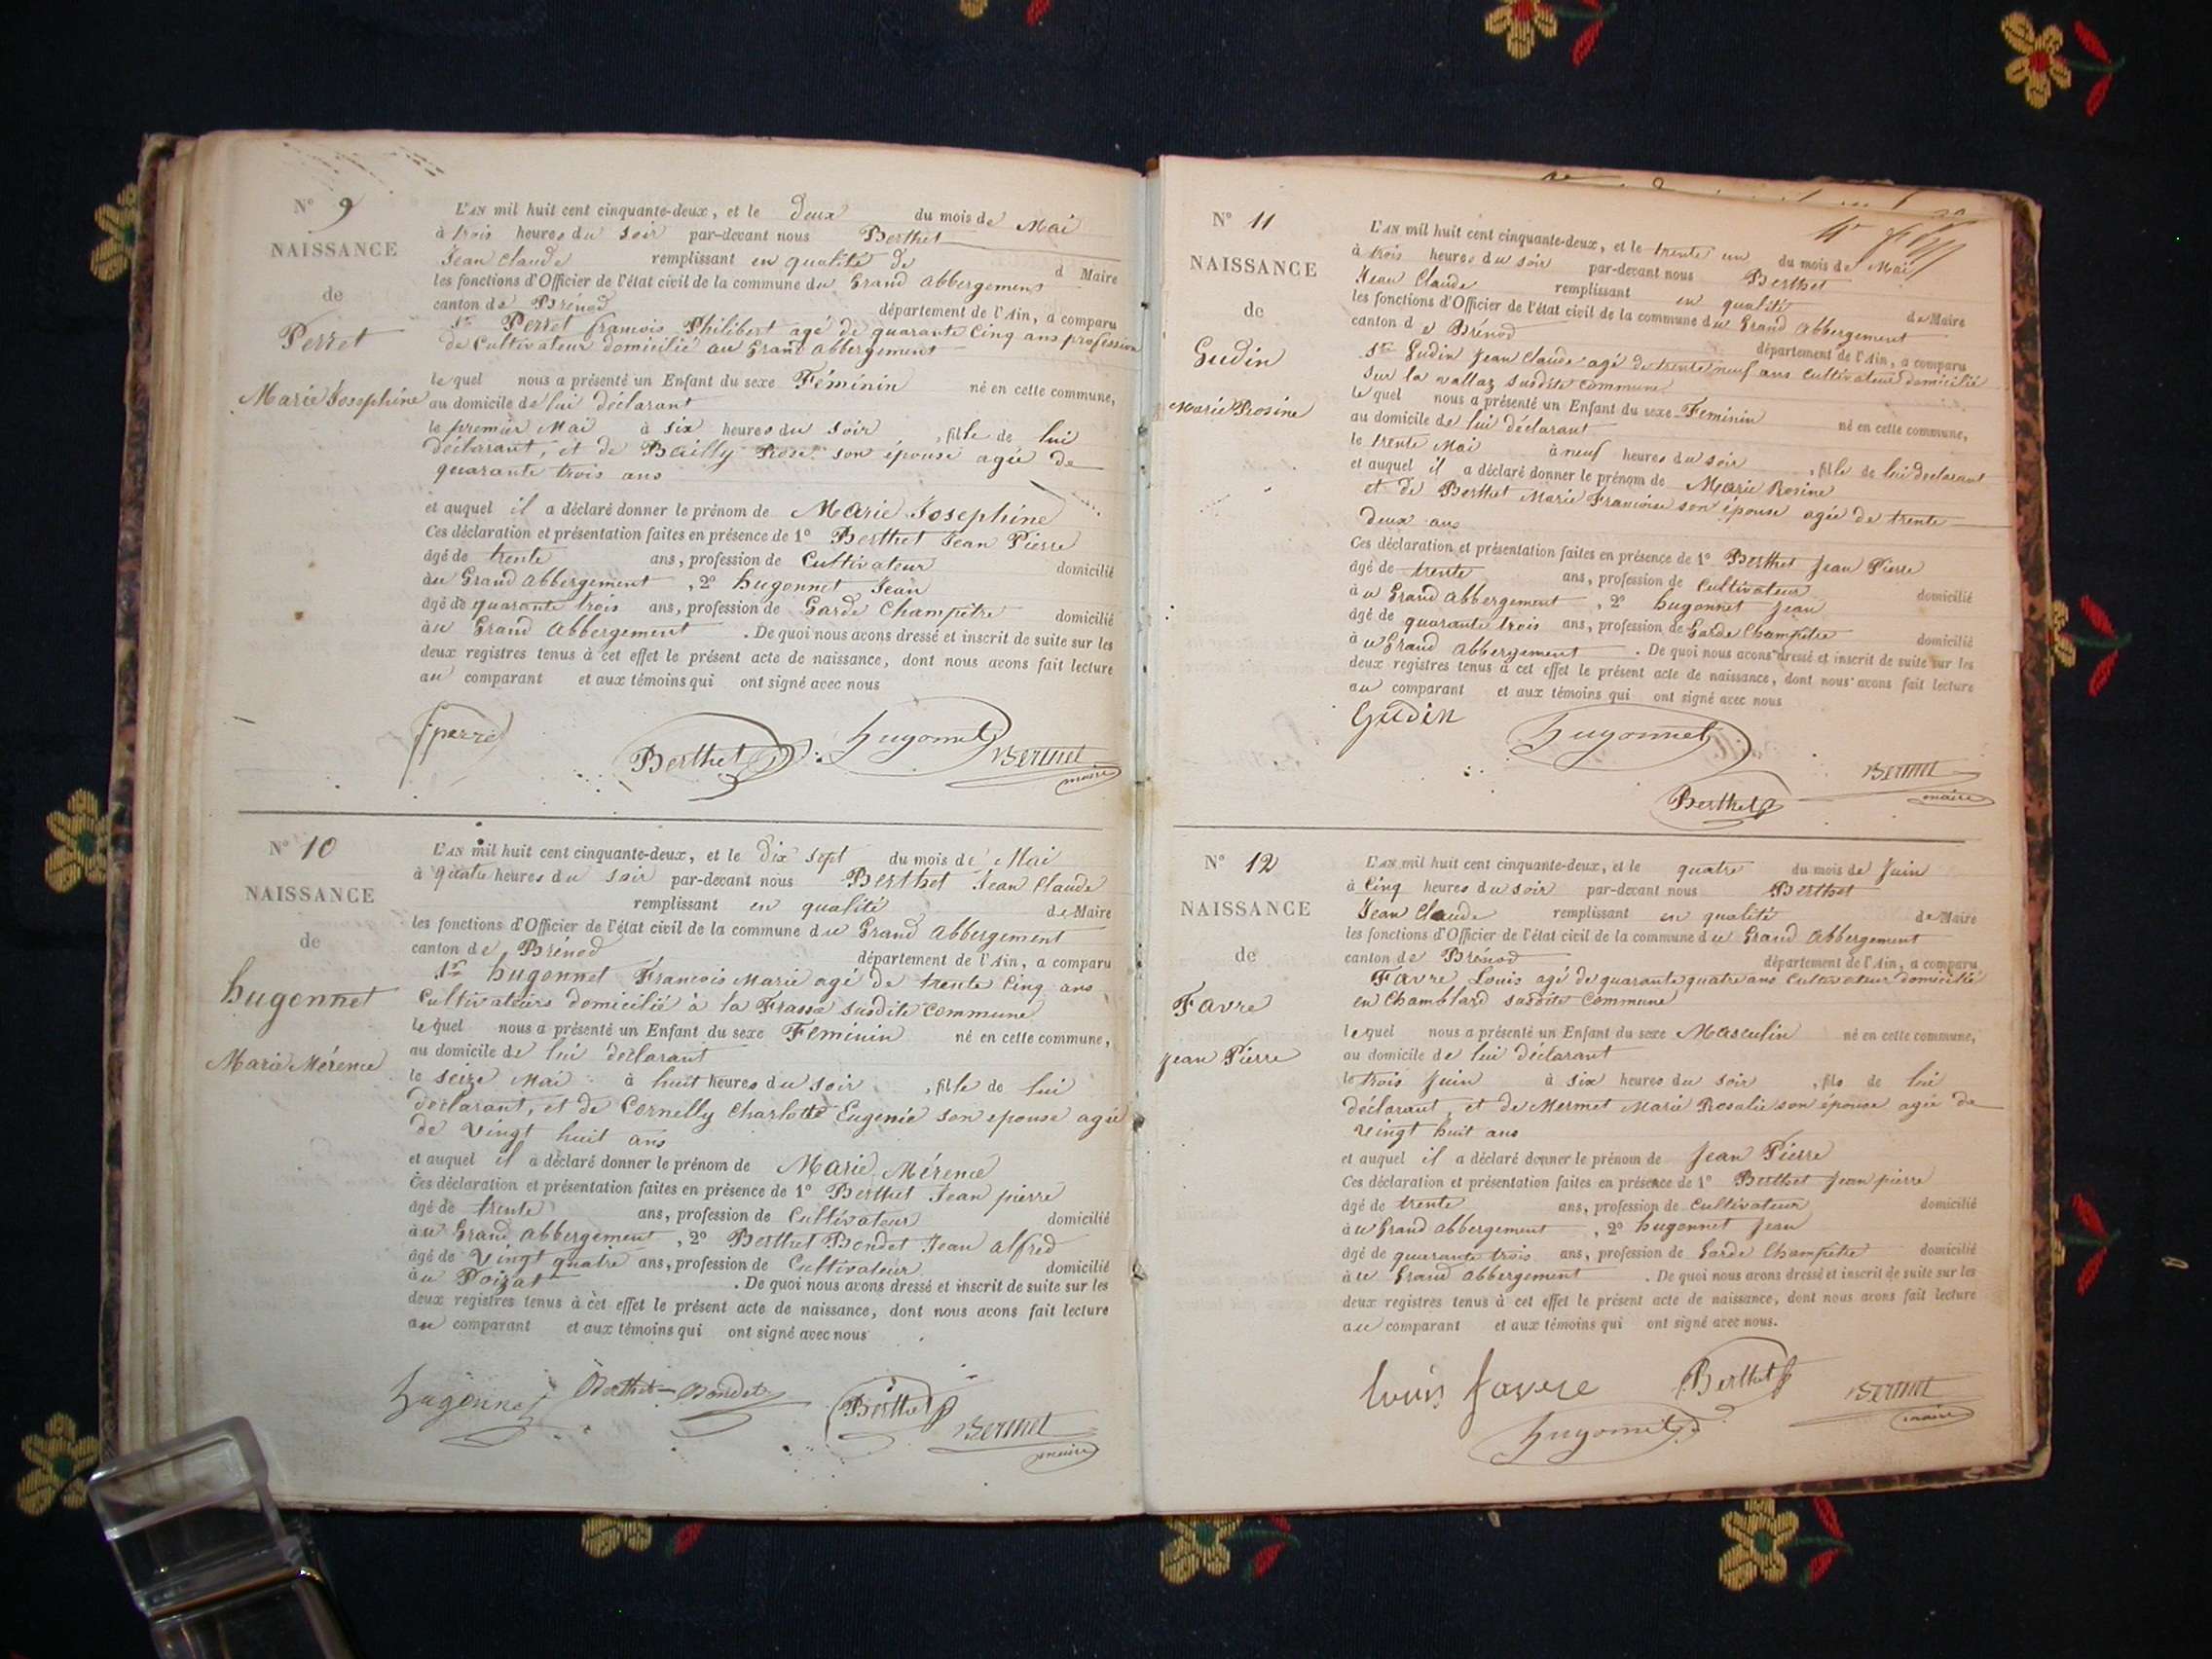 N° 9
NAISSANCE
de
Perret
Marie Josephine
L'AN mil huit cent cinquante-deux, et le deux du mois de Mai
à trois heures du soir par-devant nous Berthet
Jean Claude remplissant en qualité de d Maire
les fonctions d'Officier de l'état civil de la commune du Grand Abbergement
canton de Brénod département de l'Ain, a comparu
Sr Perret francois Philibert agé de quarante Cinq ans profession
de Cultivateur domicilié au Grand Abbergement
lequel nous a présenté un Enfant du sexe Féminin né en cette commune,
au domicile de lui déclarant
le premier Mai à six heures du soir , fille de lui
déclarant, et de Bailly Rose son épouse agée de
quarante trois ans
et auquel il a déclaré donner le prénom de Marie Josephine
Ces déclaration et présentation faites en présence de 1° Berthet Jean Pierre
âgé de trente ans, profession de Cultivateur domicilié
au Grand Abbergement , 2° hugonnet Jean
âgé de quarante trois ans, profession de Garde Champêtre domicilié
au Grand Abbergement . De quoi nous avons dressé et inscrit de suite sur les
deux registres tenus à cet effet le présent acte de naissance, dont nous avons fait lecture
au comparant et aux témoins qui ont signé avec nous
Berthet hugonnet Berthet
maire
N° 10
NAISSANCE
de
hugonnet
Marie Mérence
L'AN mil huit cent cinquante-deux, et le dix sept du mois de Mai
à quatre heures du soir par-devant nous Berthet Jean Claude
remplissant en qualité de Maire
les fonctions d'Officier de l'état civil de la commune du Grand Abbergement
canton de Brénod département de l'Ain, a comparu
Sr hugonnet Francois Marie agé de trente Cinq ans
Cultivateurs domicilié à la Frasse susdite Commune
lequel nous a présenté un Enfant du sexe Feminin né en cette commune,
au domicile de lui déclarant
le seize Mai à huit heures du soir , fille de lui
déclarant, et de Cornelly Charlotte Eugenie son epouse agée
de Vingt huit ans
et auquel il a déclaré donner le prénom de Marie Mérence
Ces déclaration et présentation faites en présence de 1° Berthet Jean pierre
âgé de trente ans, profession de Cultivateur domicilié
au Grand Abbergement , 2° Berthet Bondet Jean alfred
âgé de Vingt quatre ans, profession de Cultivateur domicilié
au Poizat . De quoi nous avons dressé et inscrit de suite sur les
deux registres tenus à cet effet le présent acte de naissance, dont nous avons fait lecture
au comparant et aux témoins qui ont signé avec nous
hugonnet Berthet-Bondet Berthet Berthet
maire
N° 11
NAISSANCE
de
Gudin
Marie Rosine
L'AN mil huit cent cinquante-deux, et le trente un du mois de Mai
à trois heures du soir par-devant nous Berthet
Jean Claude remplissant en qualité de Maire
les fonctions d'Officier de l'état civil de la commune du Grand Abbergement
canton de Brénod département de l'Ain, a comparu
Sr Gudin Jean Claude agé de trente neuf ans Cultivateur domicilié
sur la vallaz susdite Commune
lequel nous a présenté un Enfant du sexe Feminin né en cette commune,
au domicile de lui déclarant
le trente Mai à neuf heures du soir , fille de lui declarant
et auquel il a déclaré donner le prénom de Marie Rosine
et de Berthet Marie Francoise son épouse agée de trente
deux ans
Ces déclaration et présentation faites en présence de 1° Berthet Jean Pierre
âgé de trente ans, profession de Cultivateur domicilié
au Grand Abbergement , 2° hugonnet Jean
âgé de quarante trois ans, profession de Garde Champêtre domicilié
au Grand Abbergement . De quoi nous avons dressé et inscrit de suite sur les
deux registres tenus à cet effet le présent acte de naissance, dont nous avons fait lecture
au comparant et aux témoins qui ont signé avec nous
Gudin hugonnet
Berthet Berthet
maire
N° 12
NAISSANCE
de
Favre
Jean Pierre
L'AN mil huit cent cinquante-deux, et le quatre du mois de Juin
à Cinq heures du soir par-devant nous Berthet
Jean Claude remplissant en qualité de Maire
les fonctions d'Officier de l'état civil de la commune du Grand Abbergement
canton de Brénod département de l'Ain, a comparu
Favre Louis agé de quarante quatre ans Cultivateur domicilié
en Chamblard susdite Commune
lequel nous a présenté un Enfant du sexe Masculin né en cette commune,
au domicile de lui déclarant
le trois Juin à six heures du soir , fils de lui
déclarant, et de Mermet Marie Rosalie son épouse agée de
vingt huit ans
et auquel il a déclaré donner le prénom de Jean Pierre
Ces déclaration et présentation faites en présence de 1° Berthet Jean pierre
âgé de trente ans, profession de Cultivateur domicilié
au Grand Abbergement , 2° hugonnet Jean
âgé de quarante trois ans, profession de Garde Champêtre domicilié
au Grand Abbergement . De quoi nous avons dressé et inscrit de suite sur les
deux registres tenus à cet effet le présent acte de naissance, dont nous avons fait lecture
au comparant et aux témoins qui ont signé avec nous.
Louis favre Berthet Berthet
hugonnet maire